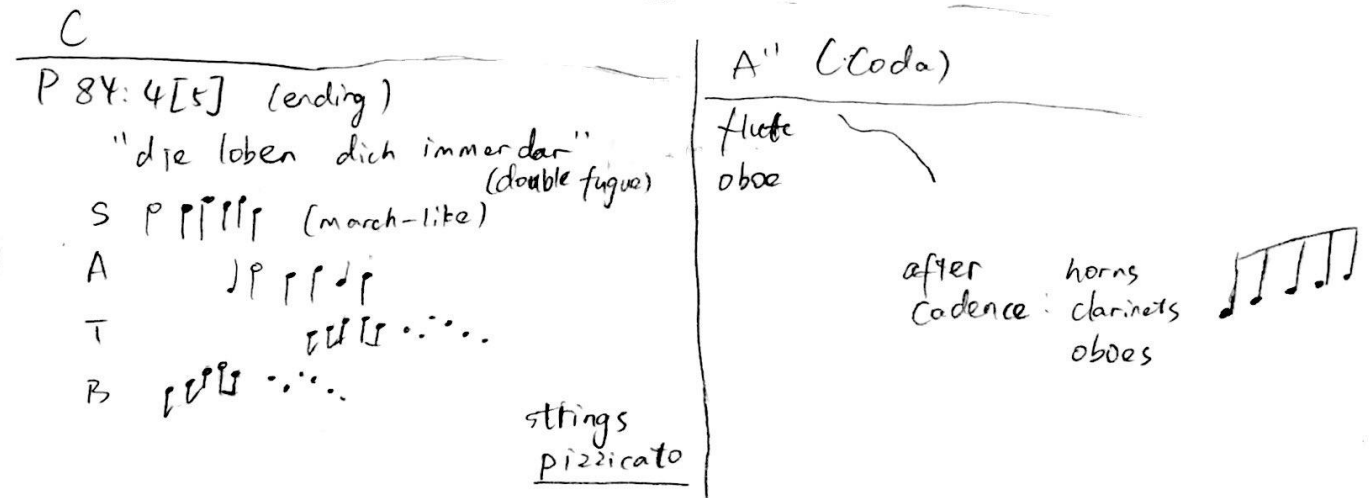 C
P 84: 4[5] (ending)
"die loben dich immerdar"
(double fugue)
S (march-like)
A
T
B
strings
pizzicato
A" (Coda)
flute
oboe
after horns
cadence: clarinets
oboes